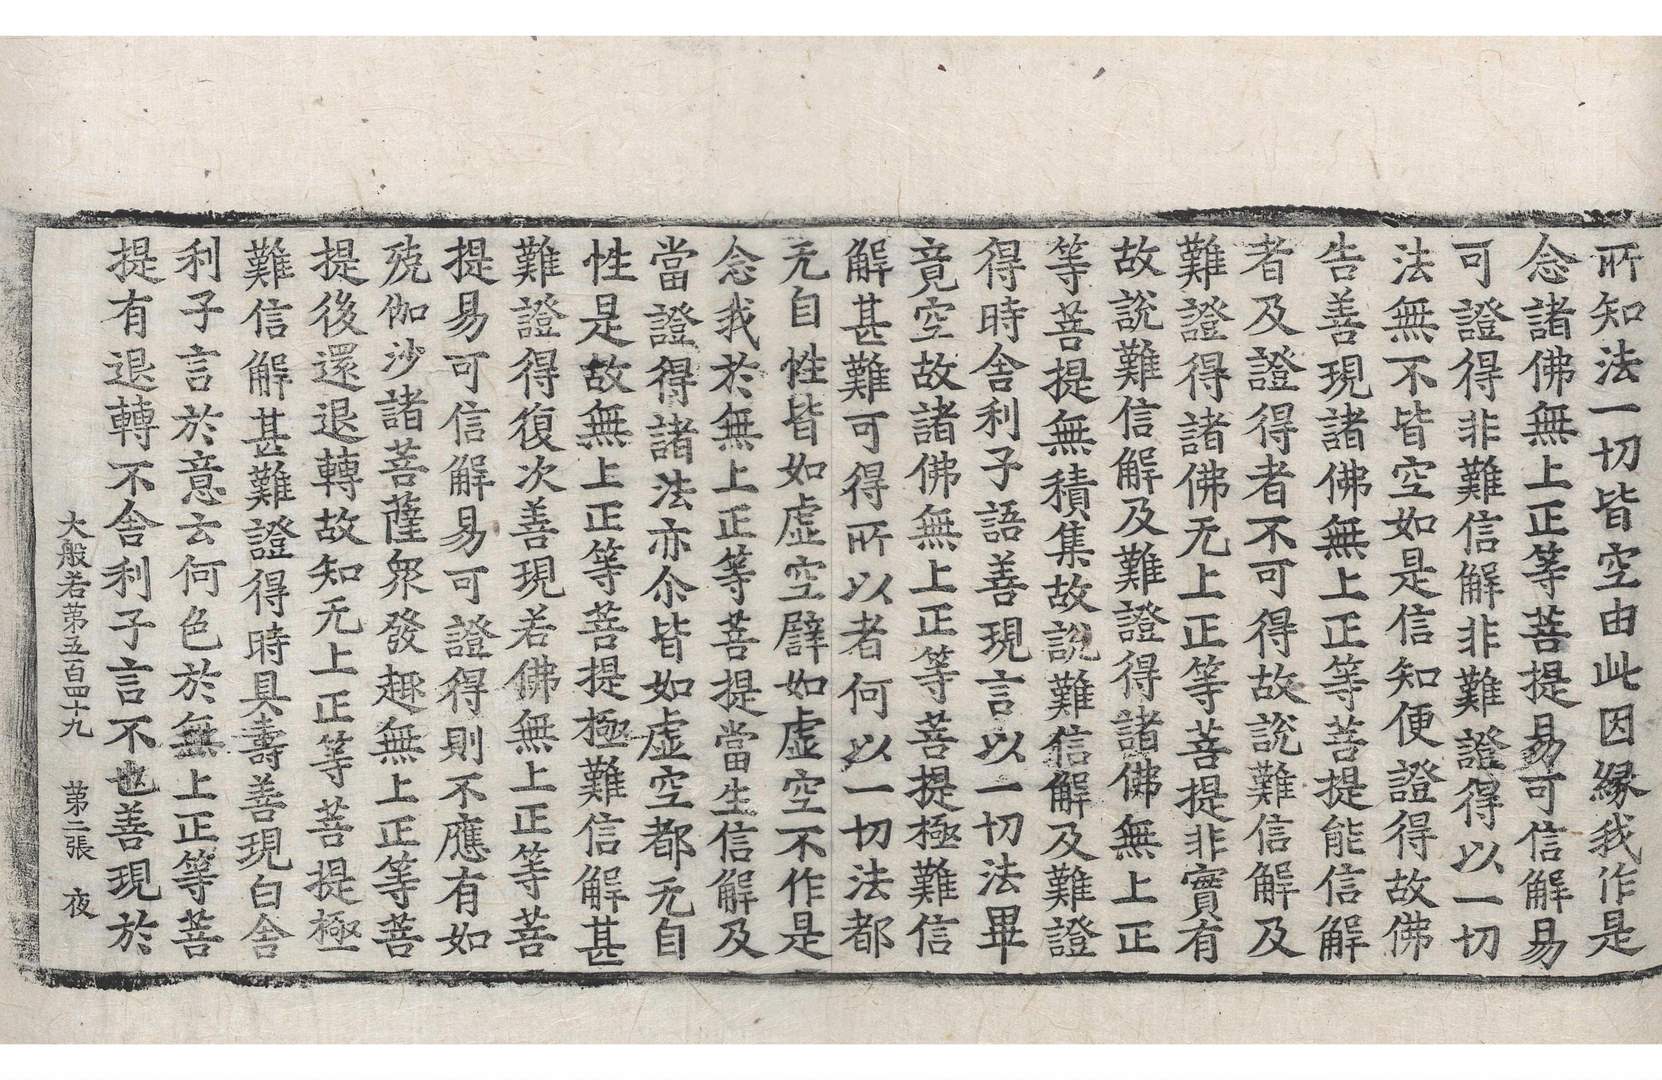 所知法一切皆空由此因緣我作是
念諸佛無上正等菩提易可信解易
可證得非難信解非難證得以一切
法無不皆空如是信知便證得故佛
告善現諸佛無上正等菩提能信解
者及證得者不可得故說難信解及
難證得諸佛无上正等菩提非實有
故說難信解及難證得諸佛無上正
等菩提無積集故說難信解及難證
得時舍利子語善現言以一切法畢
竟空故諸佛無上正等菩提極難信
解甚難可得所以者何以一切法都
无自性皆如虛空譬如虛空不作是
念我於無上正等菩提當生信解及
當證得諸法亦尒皆如虛空都无自
性是故無上正等菩提極難信解甚
難證得復次善現若佛無上正等菩
提易可信解易可證得則不應有如
殑伽沙諸菩薩衆發趣無上正等菩
提後還退轉故知无上正等菩提極
難信解甚難證得時具壽善現白舍
利子言於意云何色於無上正等菩
提有退轉不舍利子言不也善現於
大般若第五百四十九 第二張 夜